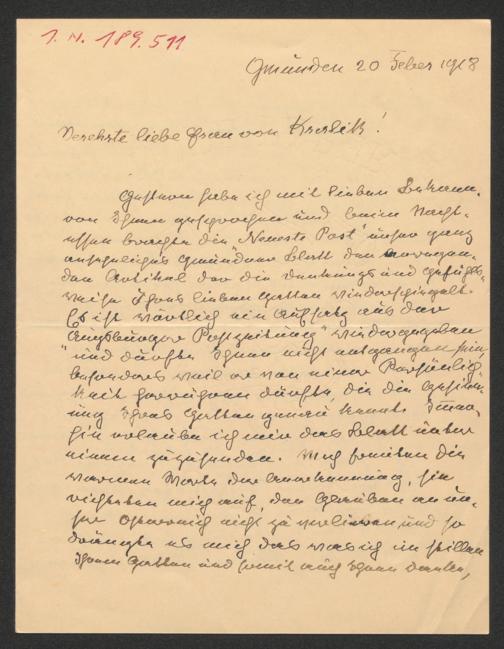 I. N. 189.511
Gmünden 20 Feber 1918
Verehrte liebe Frau von Kralik!
Gestern habe ich mit lieben Bekann-
von Ihnen gesprochen und beim Nacht-
essen brachte die „Neueste Post" unser ganz
Gmündner Blatt den
den Artikel der die Denkungs und Gefühls-
weise Ihres lieben Gatten wiederspiegelt.
Es ist wörtlich ein Aufsatz aus der
„Augsburger Postzeitung" wiedergegeben
und dürfte Ihnen nicht entgangen sein,
besonders weil er von einer Persönlich-
keit herrühren dürfte, die die Gesin-
nung Ihres Gatten genau kennt. Immer-
hin erlaube ich mir das Blatt
einem zuzusenden. Mich freuten die
warmen Worte der Anerkennung, sie
richteten mich auf, den Glauben an un-
ser Österreich nicht zu verlieren und so
drängte es mich, das was ich im stillen
Ihrem Gatten und somit auch Ihnen danke,